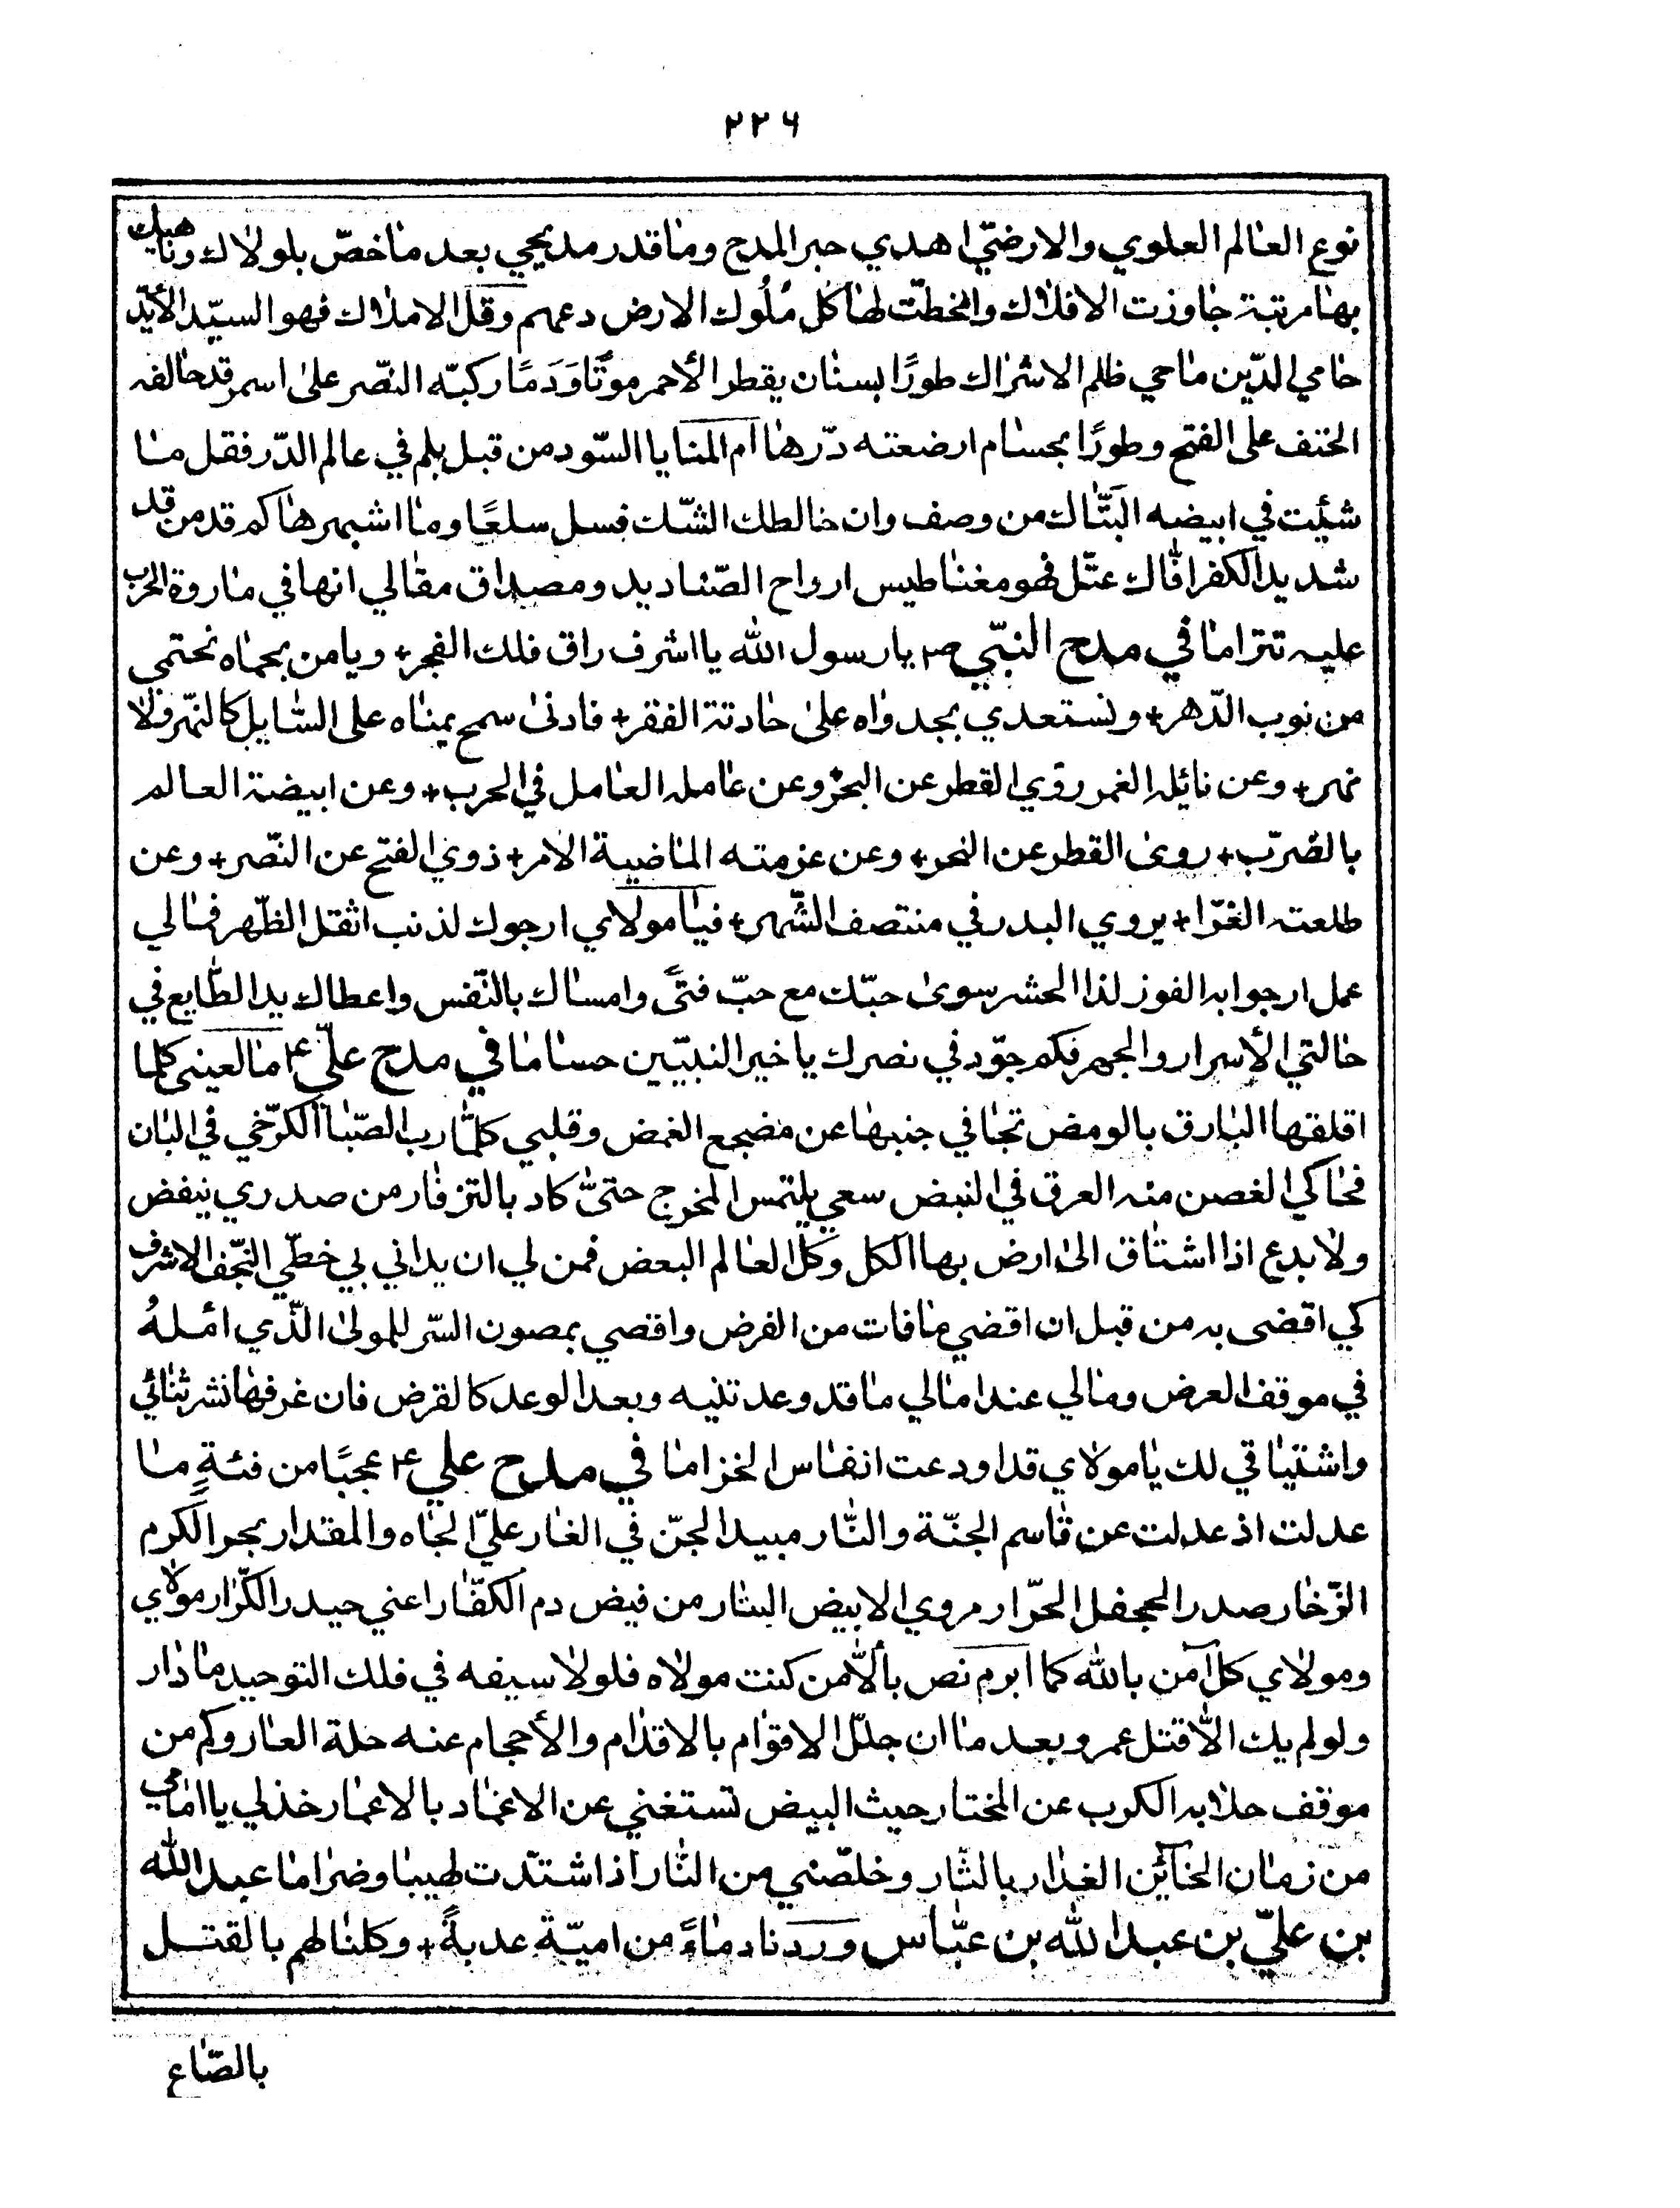 ٢٢٦
نوع العالم العلوي والارضيّ اهدي حبر المدح وما قدر مديحي بعد ما خصّ بلولاك وناهيك
بها مرتبة جاوزت الافلاك وانخطّت لها كل مُلُوك الارض دعهم وقل الاملاك فهو السيّد الأيّد
حامي الدّين ماحي ظلم الاشراك طورًا بسنان يقطر الأحمر موتًا وَدَمًا ركبّه النّصر على اسمر قد حالفه
الحتف على الفتح وطورًا بحسام ارضعته درّها ام المنايا السّود من قبل يلم في عالم الدّر فقل ما
شئيت في ابيضه البَتّاك من وصف وان خالطك الشّك فسل سلعًا وما اشبهرها كم قد من قد
شديد الكفر افّاك عتّل فهو مغناطيس ارواح الصّناديد ومصداق مقالي انها في ماروة الحرب
عليه تتراما في مدح النبّي ص يا رسول الله يا اشرف راق فلك الفجر+ ويا من بحماه نحتمى
من نوب الدّهر+ ونستعدي بجدواه على حادتة الفقر+ فادنى سمح يمناه على السّايل كالنهّر ولا
نهر+ وعن نائله الغمر روي القطر عن البحر+ وعن عامله العامل في الحرب+ وعن ابيضة العالم
بالضرّب+ روى القطر عن النحر+ وعن عزمته الماضيية الامر+ ذوي الفتح عن النّصر+ وعن
طلعته الغرّا+ يروي البدر في منتصف الشّهر+ فيا مولاي ارجوك لذنب اثقل الظّهر فمالي
عمل ارجوا به الفوز لذا الحشر سوى حبّك مع حبّ فتىً وامساك بالنّفس واعطاك يد الطّايع في
حالتي الأسرار والجهر فكم جوّد في نصرك يا خير النبيّين حساما في مدح عليّ ع ما لعينى كلما
اقلقها البارق بالومض تجافي جنبها عن مضجع الغمض وقلبي كلّما رب الصّبا الكرّخي في البان
فحاكي الغصن منه العرق في النبض سعي يلتمس المخرج حتىّ كاد بالتزفار من صدري ينفض
ولا بدع اذا اشتاق الى ارض بها الكل وكل العالم البعض فمن لي ان يداني بي خطّي النّجف الاشرف
كي اقضى به من قبل ان اقضي ما فات من الفرض واقصي بمصون السّر للمولى الذّي امُلهُ
في موقف العرض ومالي عند امالي ما قد وعدتنيه وبعد الوعد كالقرض فان غرفها نشر ثنائي
واشتياقي لك يا مولاي قد اودعت انفاس الخزاما في مدح علي ع عجبًا من فئةٍ ما
عدلت اذ عدلت عن قاسم الجنّة والنّار مبيد الجنّ في الغار عليّ الجاه والمقدار بحر الكرم
الزّخار صدر الجحفل الحرّار مروي الابيض البتار من فيض دم الكفّار اعني حيدر الكرّار مولاي
ومولاي كل آمن بالله كما ابرم نص بألاّ من كنت مولاه فلولا سيفه في فلك التوحيد ما دار
ولو لم يك الاّ قتل عمر وبعد ما ان جللّ الاقوام بالاقدام والأحجام عنه حلة العار وكم من
موقف حلا به الكرب عن المختار حيث البيض تستغني عن الاغماد بالاعمار خذلي يا امامي
من زمان الخآئن الغدار بالثار وخلصّني من النّار اذا اشتدّت لهيبا وضراما عبد الله
بن عليّ بن عبد الله بن عبّاس وردنا دماءً من اميّة عدبةً+ وكلنا لهم بالقتل
بالصّاع